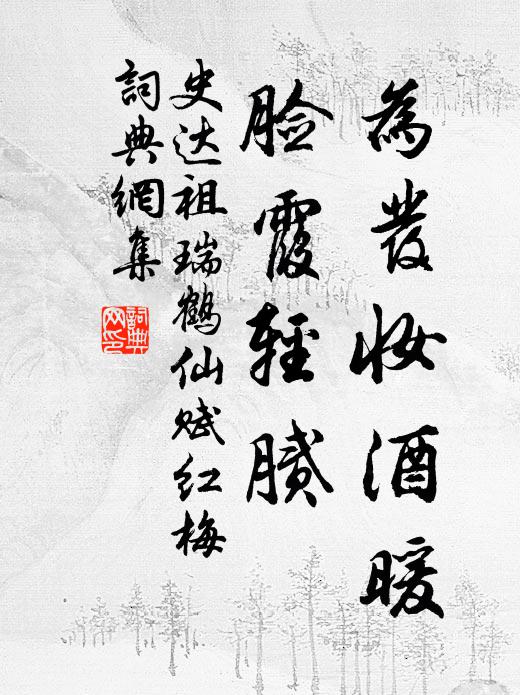 為發妆酒暖
脸霞輕膩
史达祖瑞鶴仙赋红梅
詞典網集
詞典
网印